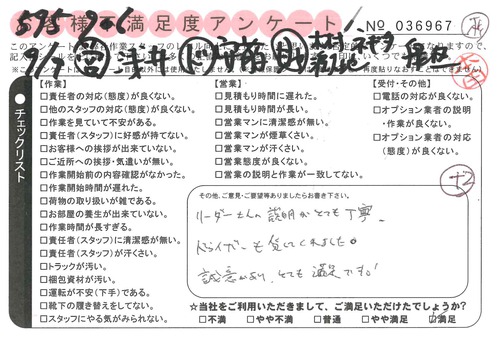 お客様満足度アンケート
No 036967
595 206
7/7
チェックリスト
【作業】
□責任者の対応(態度)が良くない。
□他のスタッフの対応(態度)が良くない。
□作業を見ていて不安がある。
□責任者(スタッフ)に好感が持てない。
□お客様への挨拶が出来ていない。
□ご近所への挨拶・気遣いが無い。
□作業開始前の内容確認がなかった。
□作業開始時間が遅れた。
□荷物の取り扱いが雑である。
□お部屋の養生が出来ていない。
□作業時間が長すぎる。
□責任者(スタッフ)に清潔感が無い。
□責任者(スタッフ)が汗くさい。
□トラックが汚い。
□梱包資材が汚い。
□運転が不安(下手)である。
□靴下の履き替えをしてない。
□スタッフにやる気がみられない。
【営業】
□見積もり時間に遅れた。
□見積もり時間が長い。
□営業マンに清潔感が無い。
□営業マンが煙草くさい。
□営業マンが汗くさい。
□営業態度が良くない。
□営業の説明と作業が一致してない。
【受付・その他】
□電話の対応が良くない。
□オプション業者の説明・作業が良くない。
□オプション業者の対応(態度)が良くない。
+2
その他、ご意見・ご要望等ありましたらお書き下さい。
リーダーさんの説明がとても丁寧。
ドライバーも気してくれました。
誠意があり、とても満足です!
☆当社をご利用いただきまして、ご満足いただけたでしょうか?
□不満 □やや不満 □普通 □やや満足 □満足